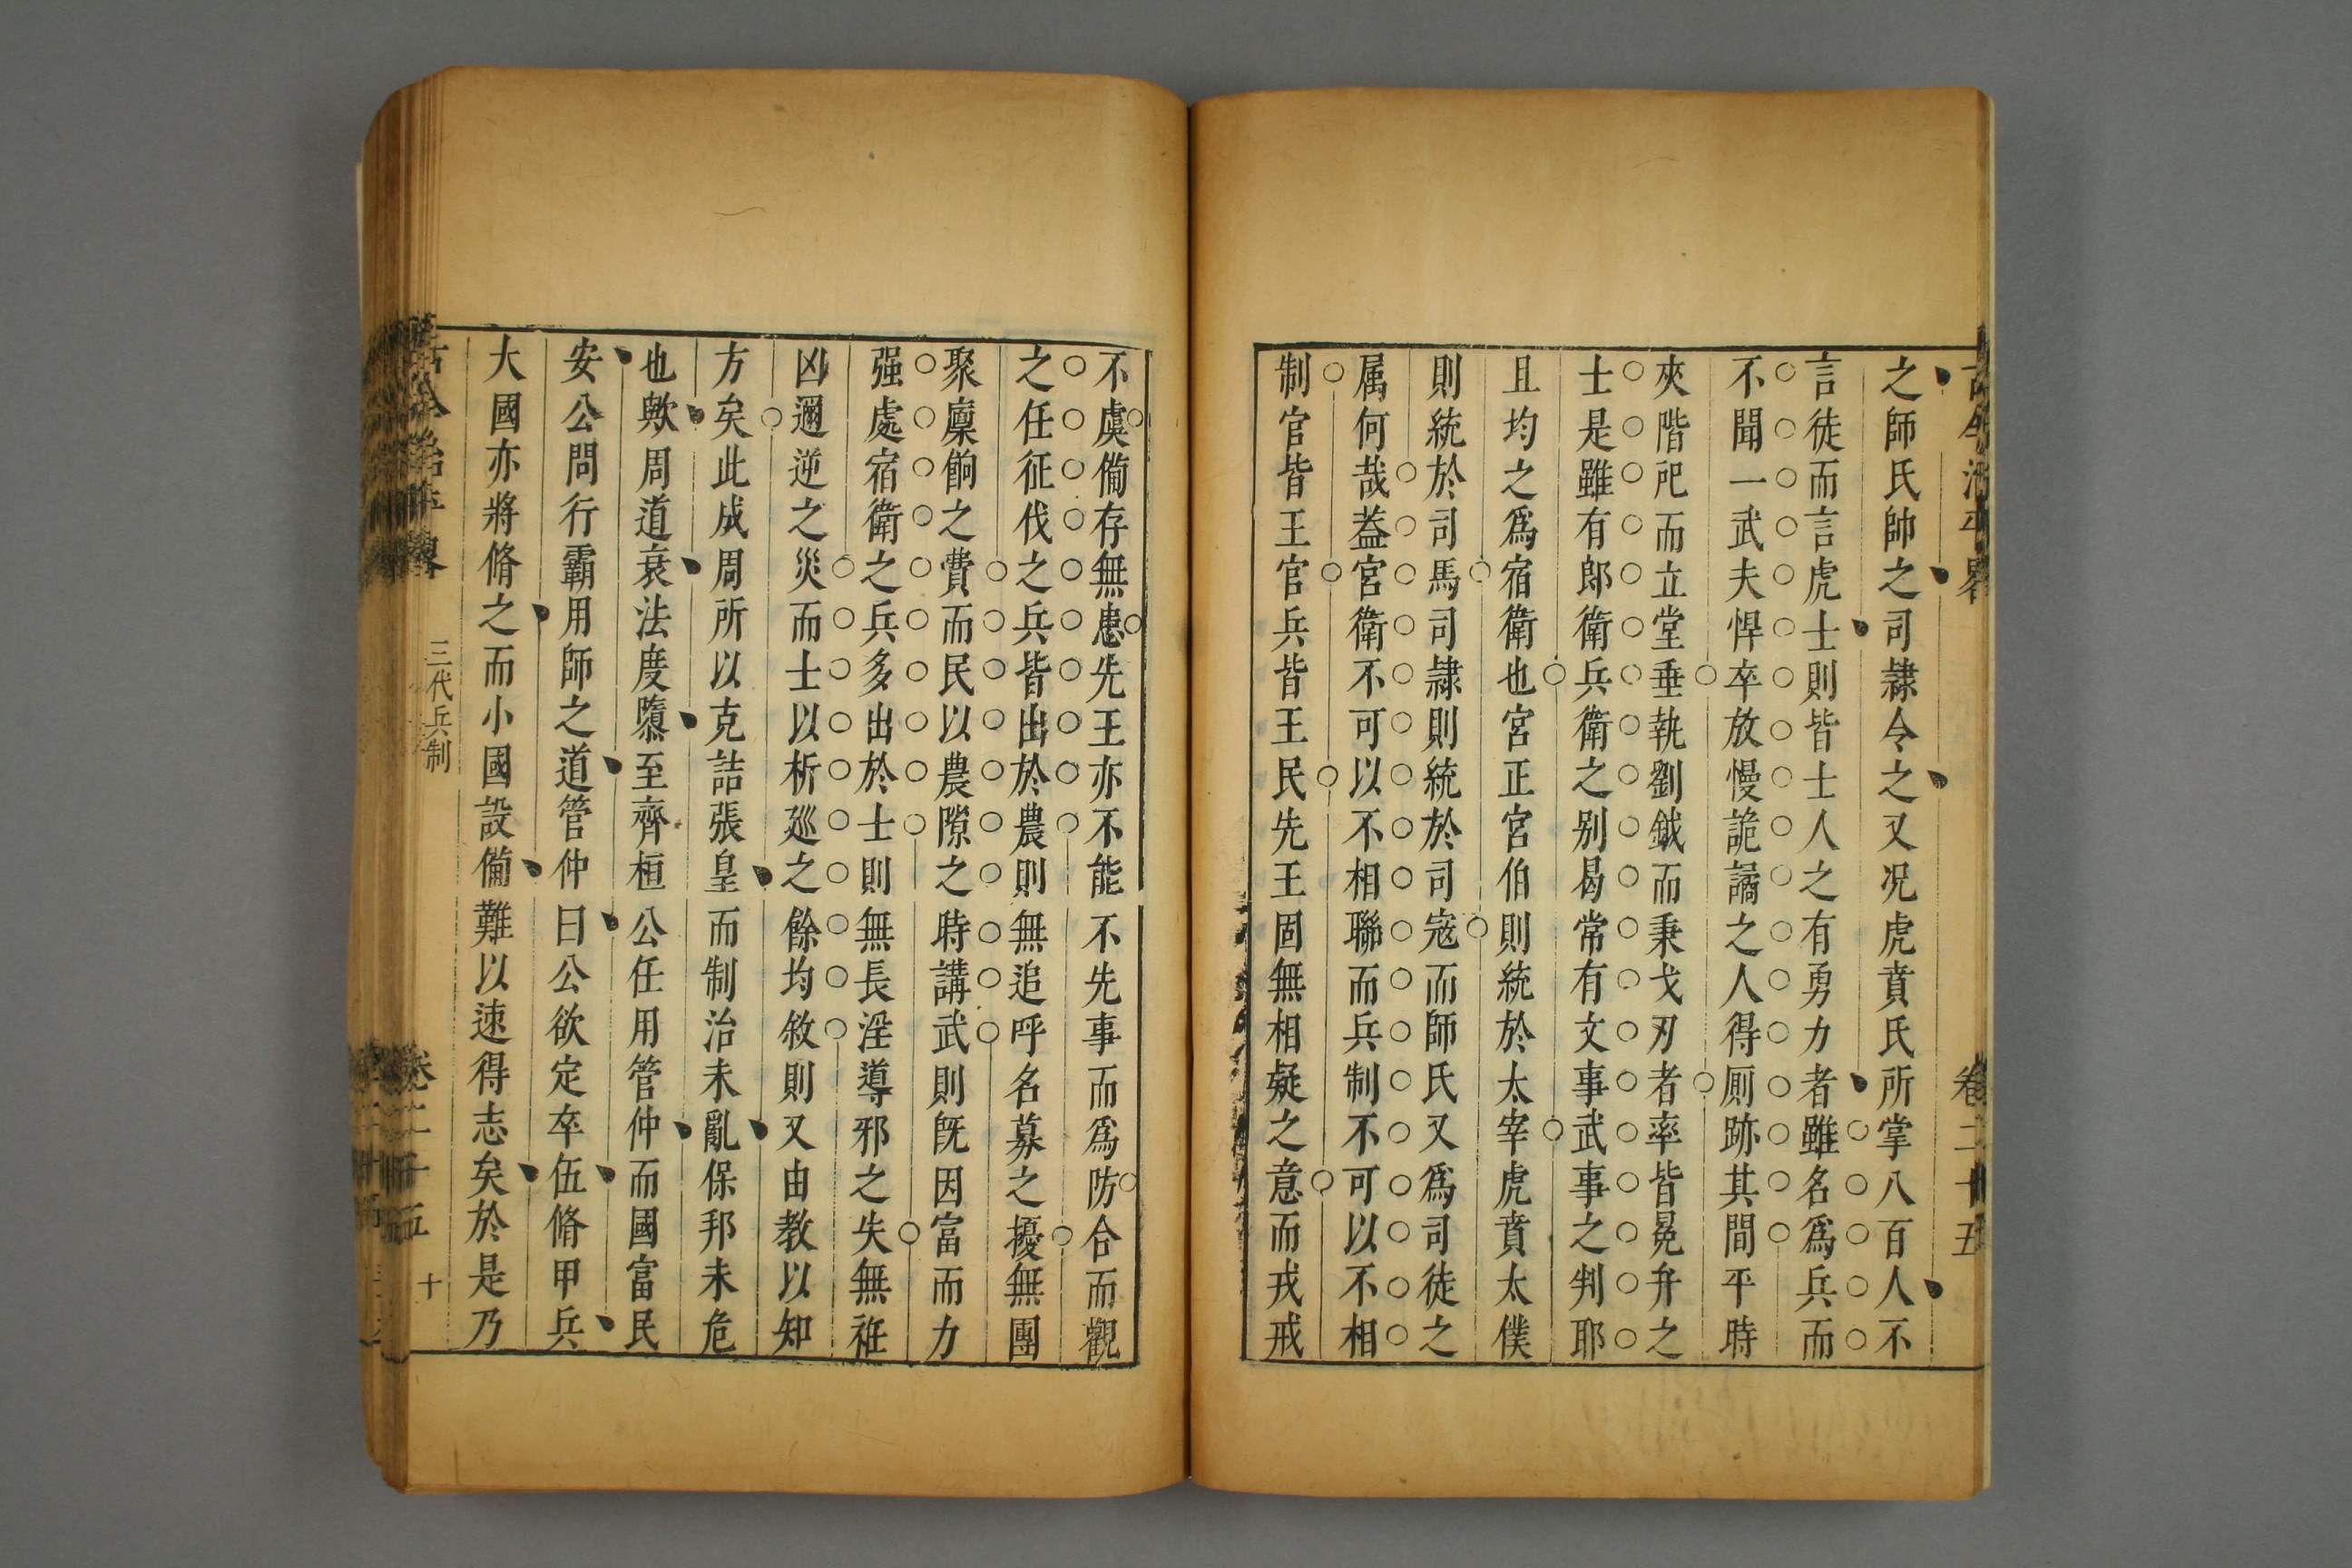 古今治平畧 卷二十五
之師氏帥之司隷令之又况虎賁氏所掌八百人不
言徒而言虎士則皆士人之有勇力者雖名爲兵而
不聞一武夫悍卒放慢詭譎之人得厠跡其間平時
夾階戺而立堂垂執劉鉞而秉戈刃者率皆冕弁之
士是雖有郎衛兵衛之别曷常有文事武事之判耶
且均之爲宿衛也宮正宮伯則統於太宰虎賁太僕
則統於司馬司隷則統於司寇而師氏又爲司徒之
属何哉葢宮衛不可以不相聯而兵制不可以不相
制官皆王官兵皆王民先王固無相疑之意而戎戒
不虞備存無患先王亦不能不先事而爲防合而觀
之任征伐之兵皆出於農則無追呼名募之擾無團
聚廩餉之費而民以農隙之時講武則旣因富而力
强處宿衛之兵多出於士則無長淫導邪之失無袵
凶邇逆之災而士以析廵之餘均敘則又由教以知
方矣此成周所以克詰張皇而制治未亂保邦未危
也歟周道衰法度隳至齊桓公任用管仲而國富民
安公問行霸用師之道管仲曰公欲定卒伍脩甲兵
大國亦將脩之而小國設備難以速得志矣於是乃
古今治平畧 三代兵制 卷二十五 十